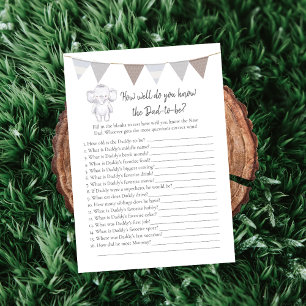 How well do you know
the Dad-to-be?
Fill in the blanks to see how well you know the New
Dad. Whoever gets the most questions correct wins!
1. How old is the Daddy to be?
2. What is Daddy's middle name?
3. What is Daddy's birth month?
4. What is Daddy's favorite food?
5. What is Daddy's biggest
6. What is Daddy's favorite drink?
7. What is Daddy's favorite movie?
8. If Daddy were a superhero, he would be?
9. What car does Daddy drive?
10. How many siblings does he have?
11. What is Daddy's favorite hobby?
12. What is Daddy's favorite color?
13. What was Daddy's first job?
14. What is Daddy's favorite sport?
15. Where was Daddy's last vacation?
16. How did he meet Mommy?